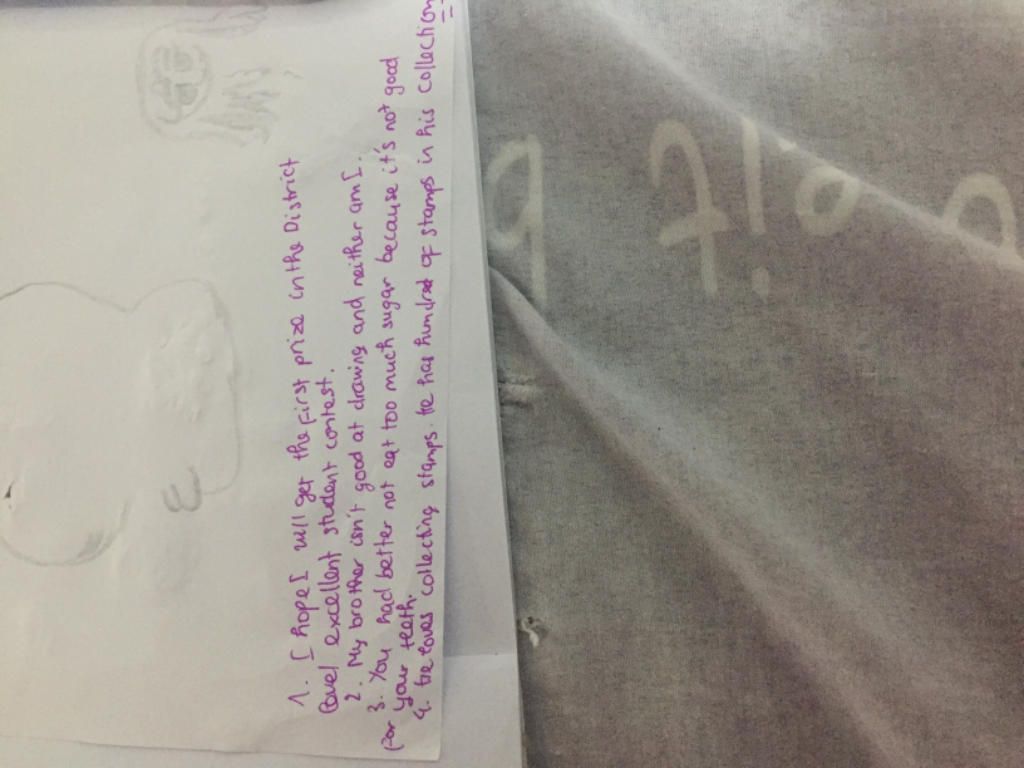 1. I hope I will get the first prize in the District
level excellent student contest.
2. My brother isn't good at drawing and neither am I.
3. You had better not eat too much sugar because it's not good
for your teeth.
4. He loves collecting stamps. He has hundred of stamps in his collection